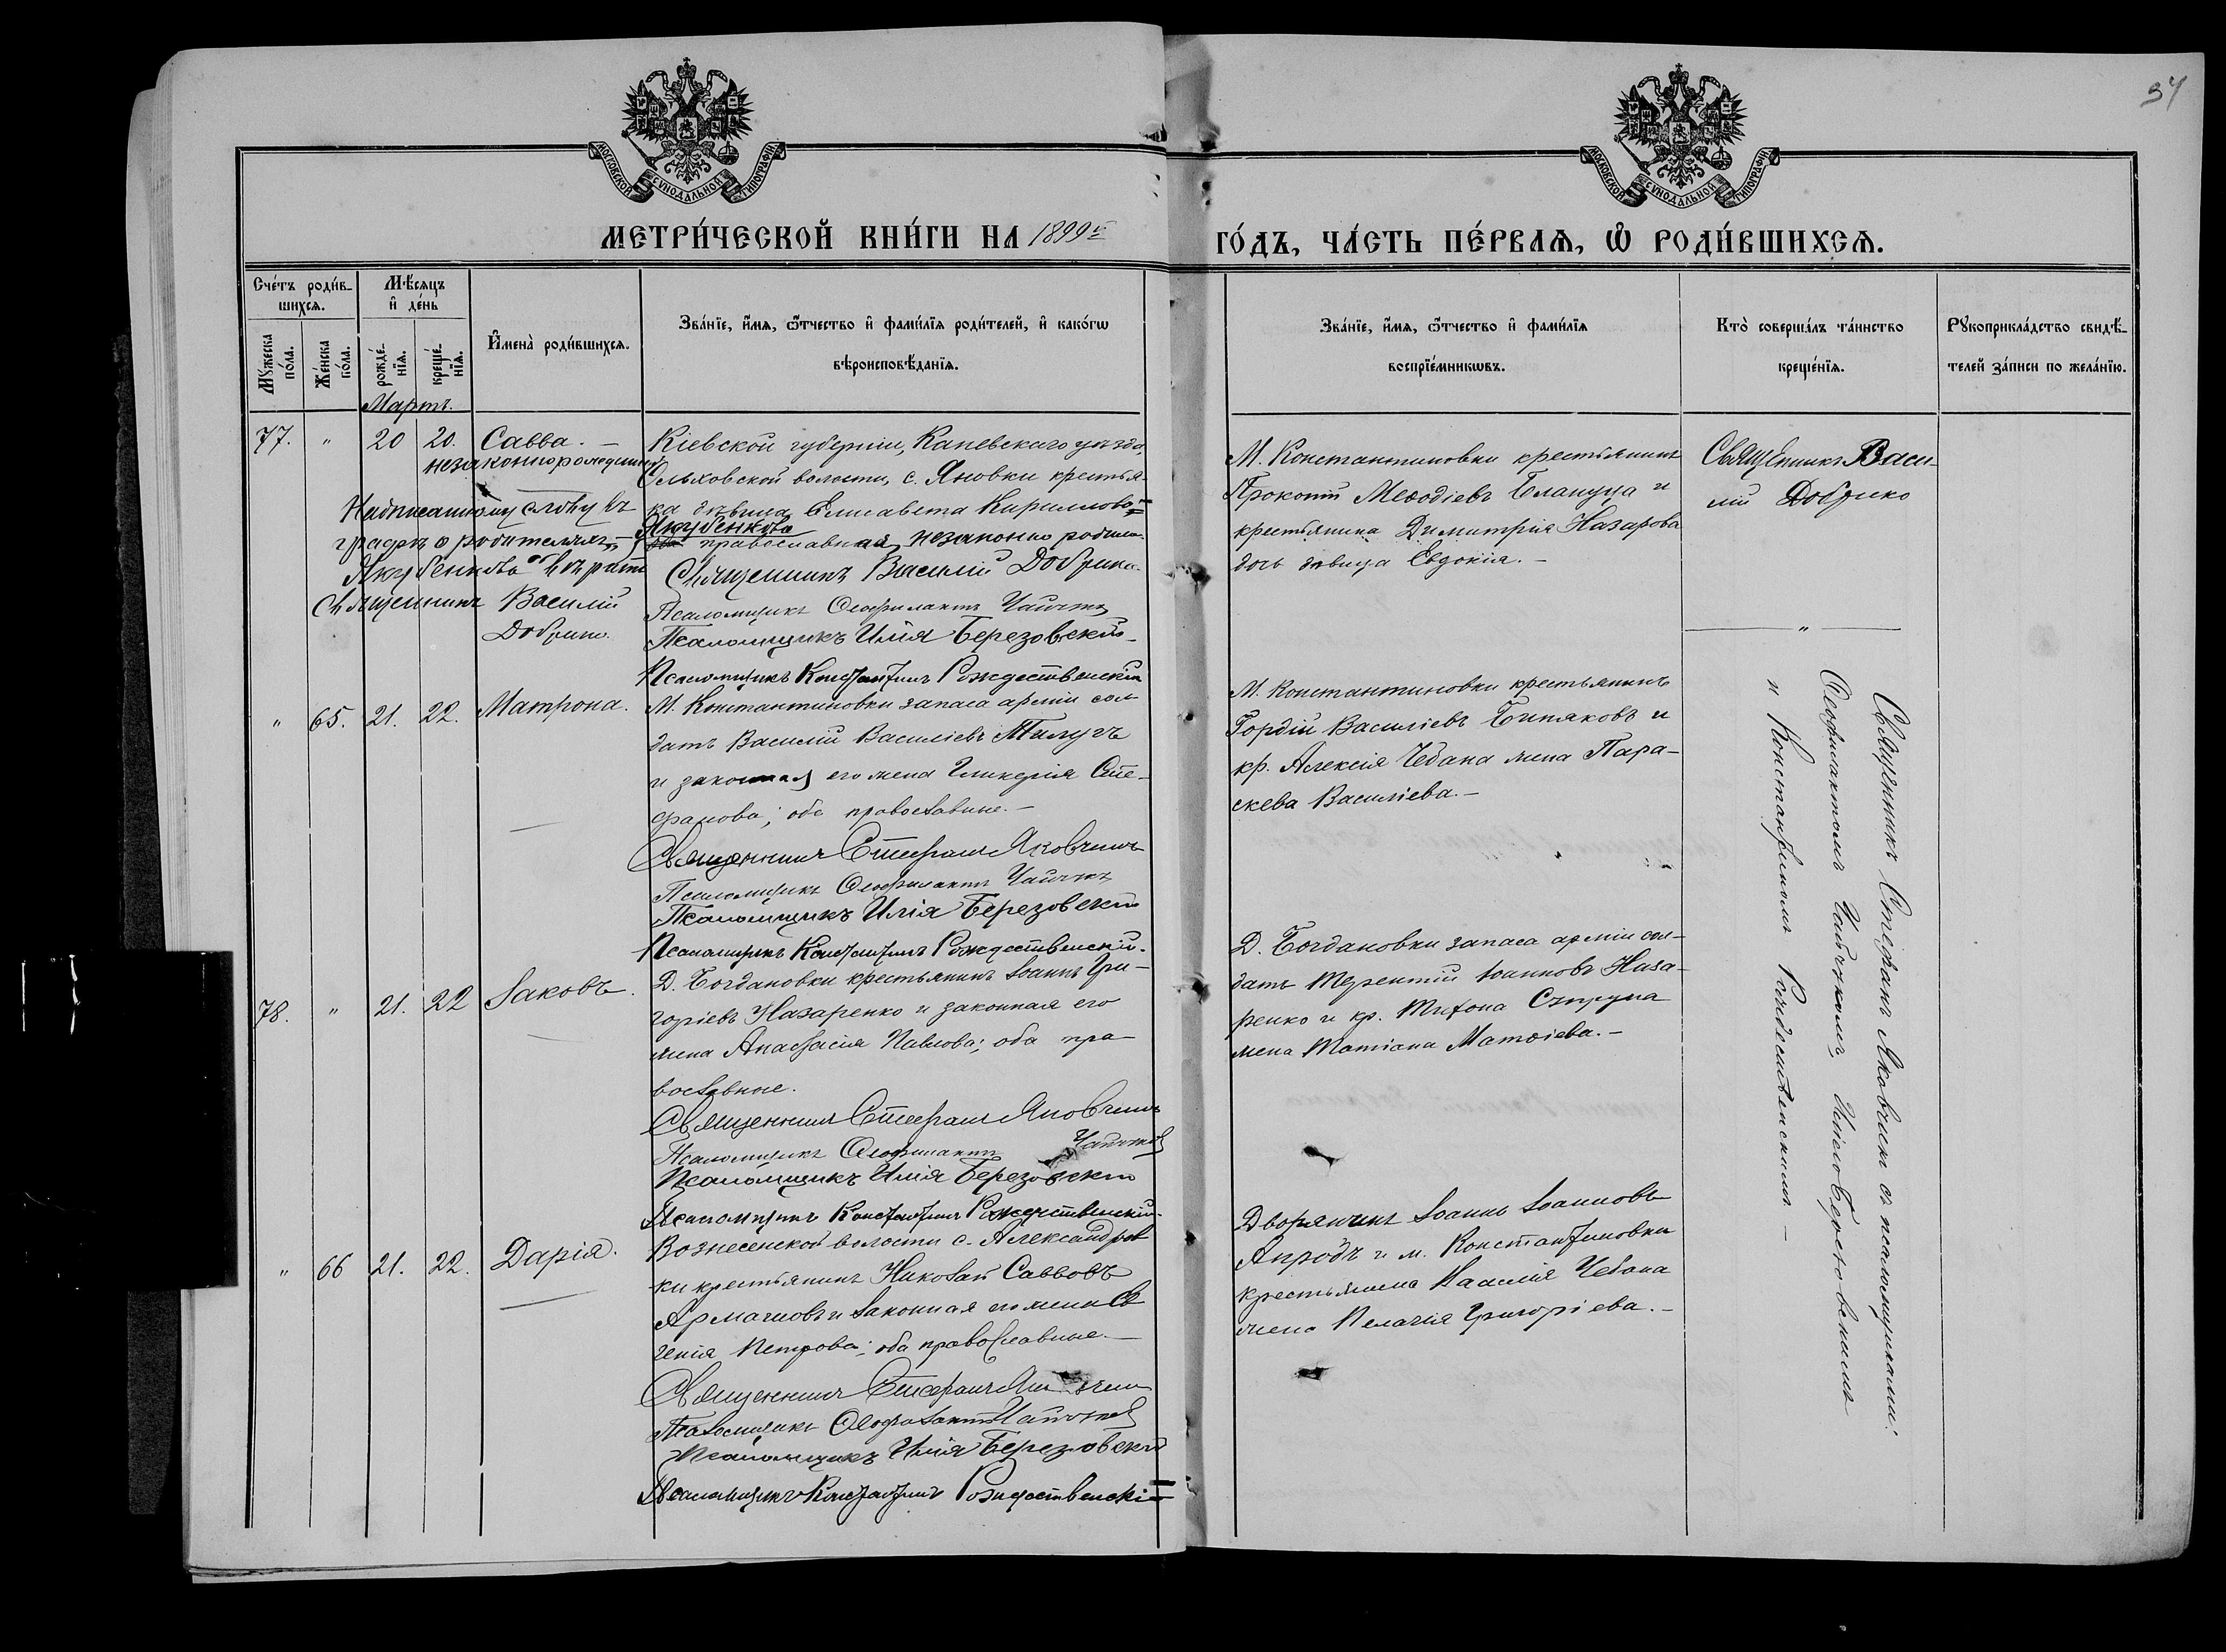 34
МОСКОВСКОЙ СѴНОДАЛЬНОЙ ТИПОГРАФІИ
МОСКОВСКОЙ СѴНОДАЛЬНОЙ ТИПОГРАФІИ
МЕТРИ́ЧЕСКОЙ КНИ́ГИ НА 1899й
ГО́ДЪ, ЧА́СТЬ ПЕ́РВАѦ, Ѡ РОДИ́ВШИХСѦ.
Сче́тъ роди́в-
шихсѧ.
Мꙋ́жеска
по́ла.
Же́нска
по́ла.
Мѣ́сѧцъ
и҆ де́нь
рожде́-
нїѧ.
креще́-
нїѧ.
И҆мена̀ роди́вшихсѧ.
Зва́нїе, и҆́мѧ, ѻ҆́тчество и҆ фами́лїѧ роди́телей, и҆ како́гѡ
вѣроисповѣ́данїѧ.
Зва́нїе, и҆́мѧ, ѻ҆́тчество и҆ фами́лїѧ
воспрїе́мникѡвъ.
Кто̀ соверша́лъ та́инство
креще́нїѧ.
Рꙋкоприкла́дство свидѣ́-
телей за́писи по жела́нїю.
Мартъ.
77. " 20 20. Савва. —
незаконнорожденный
Надписанному слову въ
графѣ о родителяхъ —
Якубенкова вѣрить
Священникъ Василій
Добрико.
Кіевской губерніи, Каневскаго уѣзда,
Ольховской волости, с. Яновки крестья-
ка дѣвица Елисавета Кириллова
Якубенкова
православная, незаконно родила.
Священникъ Василій Добрико.
Псаломщикъ Ѳеофилактъ
Псаломщикъ Илія Березовскій
Псаломщикъ Константинъ Рождественскій
М. Константиновки крестьянинъ
Прокопій Меѳодіевъ и
крестьянина Димитрія Назарова
дочь дѣвица Евдокія. —
Священникъ Васи-
лій Добрико
"
" 65. 21. 22. Матрона.
М. Константиновки запаса арміи сол-
датъ Василій Василіевъ
и законная его жена Гликерія Сте-
фанова; оба православные. —
Священникъ Стефанъ Яковчикъ
Псаломщикъ Ѳеофилактъ
Псаломщикъ Илія Березовскій
Псаломщикъ Константинъ Рождественскій.
М. Константиновки крестьянинъ
Гордій Василіевъ и
кр. Алексія Чебана жена Пара-
скева Василіева. —
Священникъ Стефанъ Яковчикъ съ псаломщиками:
Ѳеофилактомъ Иліею Березовскимъ
и Константиномъ Рождественскимъ —
78. " 21. 22 Іаковъ.
Д. Богдановки крестьянинъ Іоаннъ Гри-
горіевъ Назаренко и законная его
жена Анастасія Павлова; оба пра-
вославные.
Священникъ Стефанъ Яковчикъ
Псаломщикъ Ѳеофилактъ
Псаломщикъ Илія Березовскій
Псаломщикъ Константинъ Рождественскій.
Д. Богдановки запаса арміи сол-
датъ Терентій Іоанновъ Наза-
ренко и кр. Тихона Супруна
жена Татіана Матѳіева. —
" 66 21. 22. Дарія.
Вознесенской волости с. Александров
ки крестьянинъ Николай Саввовъ
и законная его жена Ев
генія Петрова; оба православные. —
Священникъ Стефанъ
Псаломщикъ Ѳеофилактъ
Псаломщикъ Илія Березовскій
Псаломщикъ Константинъ Рождественскій
Дворянинъ Іоаннъ Іоанновъ
и м. Константиновки
крестьянина Чебана
жена Пелагія Григоріева. —